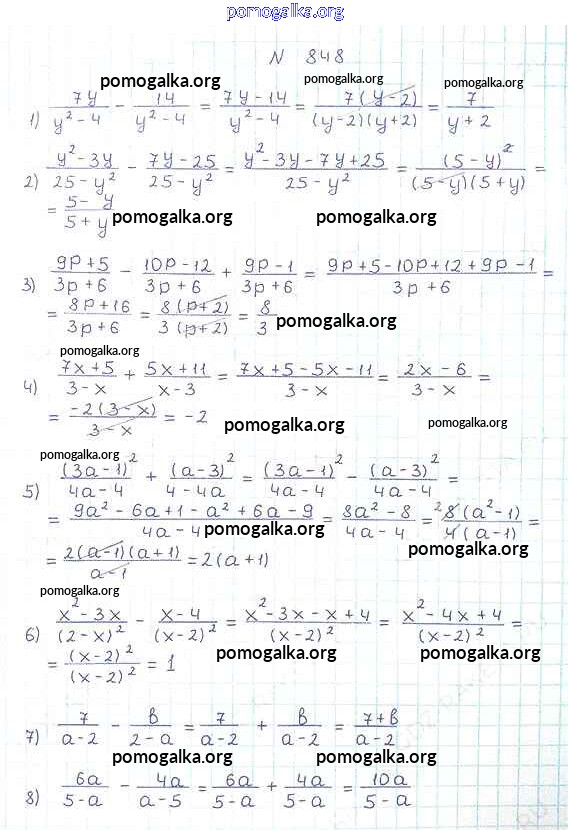 pomogalka.org
N 848
pomogalka.org pomogalka.org pomogalka.org
1) 7y/(y² - 4) - 14/(y² - 4) = (7y - 14)/(y² - 4) = 7(y - 2)/((y - 2)(y + 2)) = 7/(y + 2)
2) (y² - 3y)/(25 - y²) - (7y - 25)/(25 - y²) = (y² - 3y - 7y + 25)/(25 - y²) = (5 - y)²/((5 - y)(5 + y)) =
= (5 - y)/(5 + y) pomogalka.org pomogalka.org
3) (9p + 5)/(3p + 6) - (10p - 12)/(3p + 6) + (9p - 1)/(3p + 6) = (9p + 5 - 10p + 12 + 9p - 1)/(3p + 6) =
= (8p + 16)/(3p + 6) = 8(p + 2)/(3(p + 2)) = 8/3 pomogalka.org
pomogalka.org
4) (7x + 5)/(3 - x) + (5x + 11)/(x - 3) = (7x + 5 - 5x - 11)/(3 - x) = (2x - 6)/(3 - x) =
= -2(3 - x)/(3 - x) = -2 pomogalka.org pomogalka.org
pomogalka.org
5) (3a - 1)²/(4a - 4) + (a - 3)²/(4 - 4a) = (3a - 1)²/(4a - 4) - (a - 3)²/(4a - 4) =
= (9a² - 6a + 1 - a² + 6a - 9)/(4a - 4) = (8a² - 8)/(4a - 4) = ²8(a² - 1)/(4(a - 1)) =
pomogalka.org pomogalka.org
= 2(a - 1)(a + 1)/(a - 1) = 2(a + 1)
pomogalka.org
6) (x² - 3x)/(2 - x)² - (x - 4)/(x - 2)² = (x² - 3x - x + 4)/(x - 2)² = (x² - 4x + 4)/(x - 2)² =
= (x - 2)²/(x - 2)² = 1 pomogalka.org pomogalka.org
7) 7/(a - 2) - b/(2 - a) = 7/(a - 2) + b/(a - 2) = (7 + b)/(a - 2)
pomogalka.org pomogalka.org
8) 6a/(5 - a) - 4a/(a - 5) = 6a/(5 - a) + 4a/(5 - a) = 10a/(5 - a)